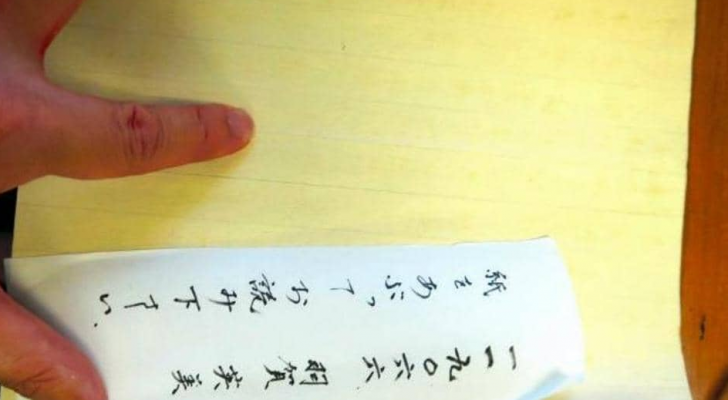 一一九〇六六 羽賀英美
紙をあぶってお読み下さい、